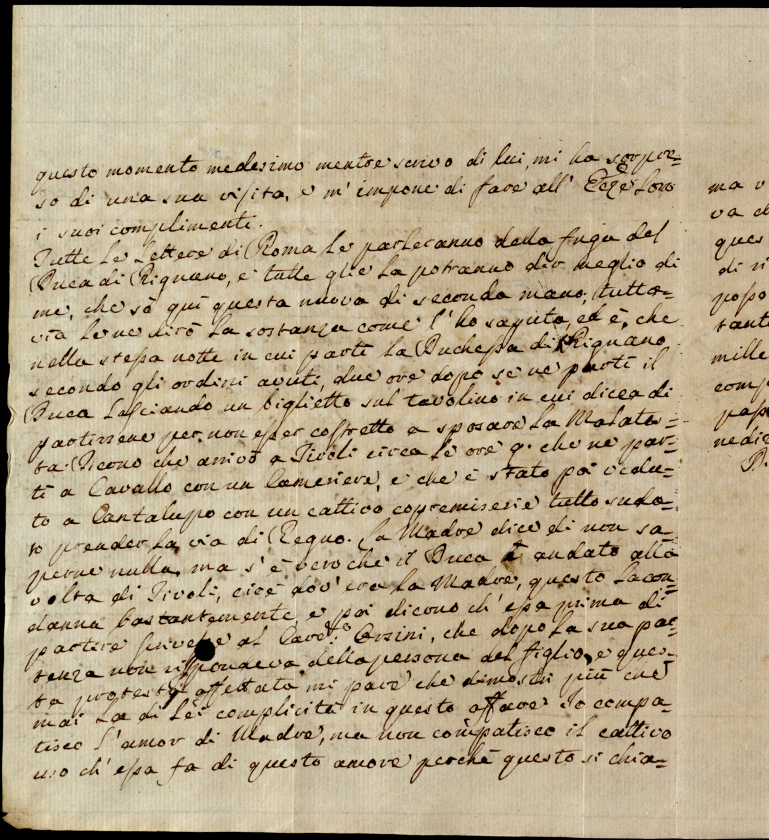 questo momento medesimo mentre scrivo di lui, mi ha sorpre=
so di una sua visita, e m' impone di fare all' Ecc.ze Loro
i suoi complimenti.
Tutte le Lettere di Roma le parleranno della fuga del
Duca di Rignano, e tutte glie la potranno dir meglio di
me, che sò quì questa nuova di seconda mano; tutta=
via le ne dirò la sostanza come l' ho saputa, ed è, che
nella stessa notte in cui partì la Duchessa di Rignano
secondo gli ordini avuti, due ore dopo se ne partì il
Duca lasciando un biglietto sul tavolino in cui dicea di
partirsene per non esser costretto a sposare la Malates=
ta. Dicono che arrivò a Tivoli circa le ore 9. che ne par=
tì a Cavallo con un Cameriere, e che è stato poi vedu=
to a Cantalupo con un cattivo tutto suda=
to prender la via di Regno. La Madre dice di non sa=
perne nulla, ma s' è vero che il Duca è andato alla
volta di Tivoli, cioè dov' era la Madre, questo la con=
danna bastantemente, e poi dicono ch' essa prima di
partire scrivesse al Card.le Orsini, che dopo la sua par=
tenza non rispondeva della persona del figlio, e ques=
ta protesta affettata mi pare che dimostri più che
mai la di Lei complicità in questo affare. Io compa=
tisco l' amor di Madre, ma non compatisco il cattivo
uso ch' essa fa di questo amore perchè questo si chia=
ma v
va d
ques
di ri
tant
mille
comp
nedi